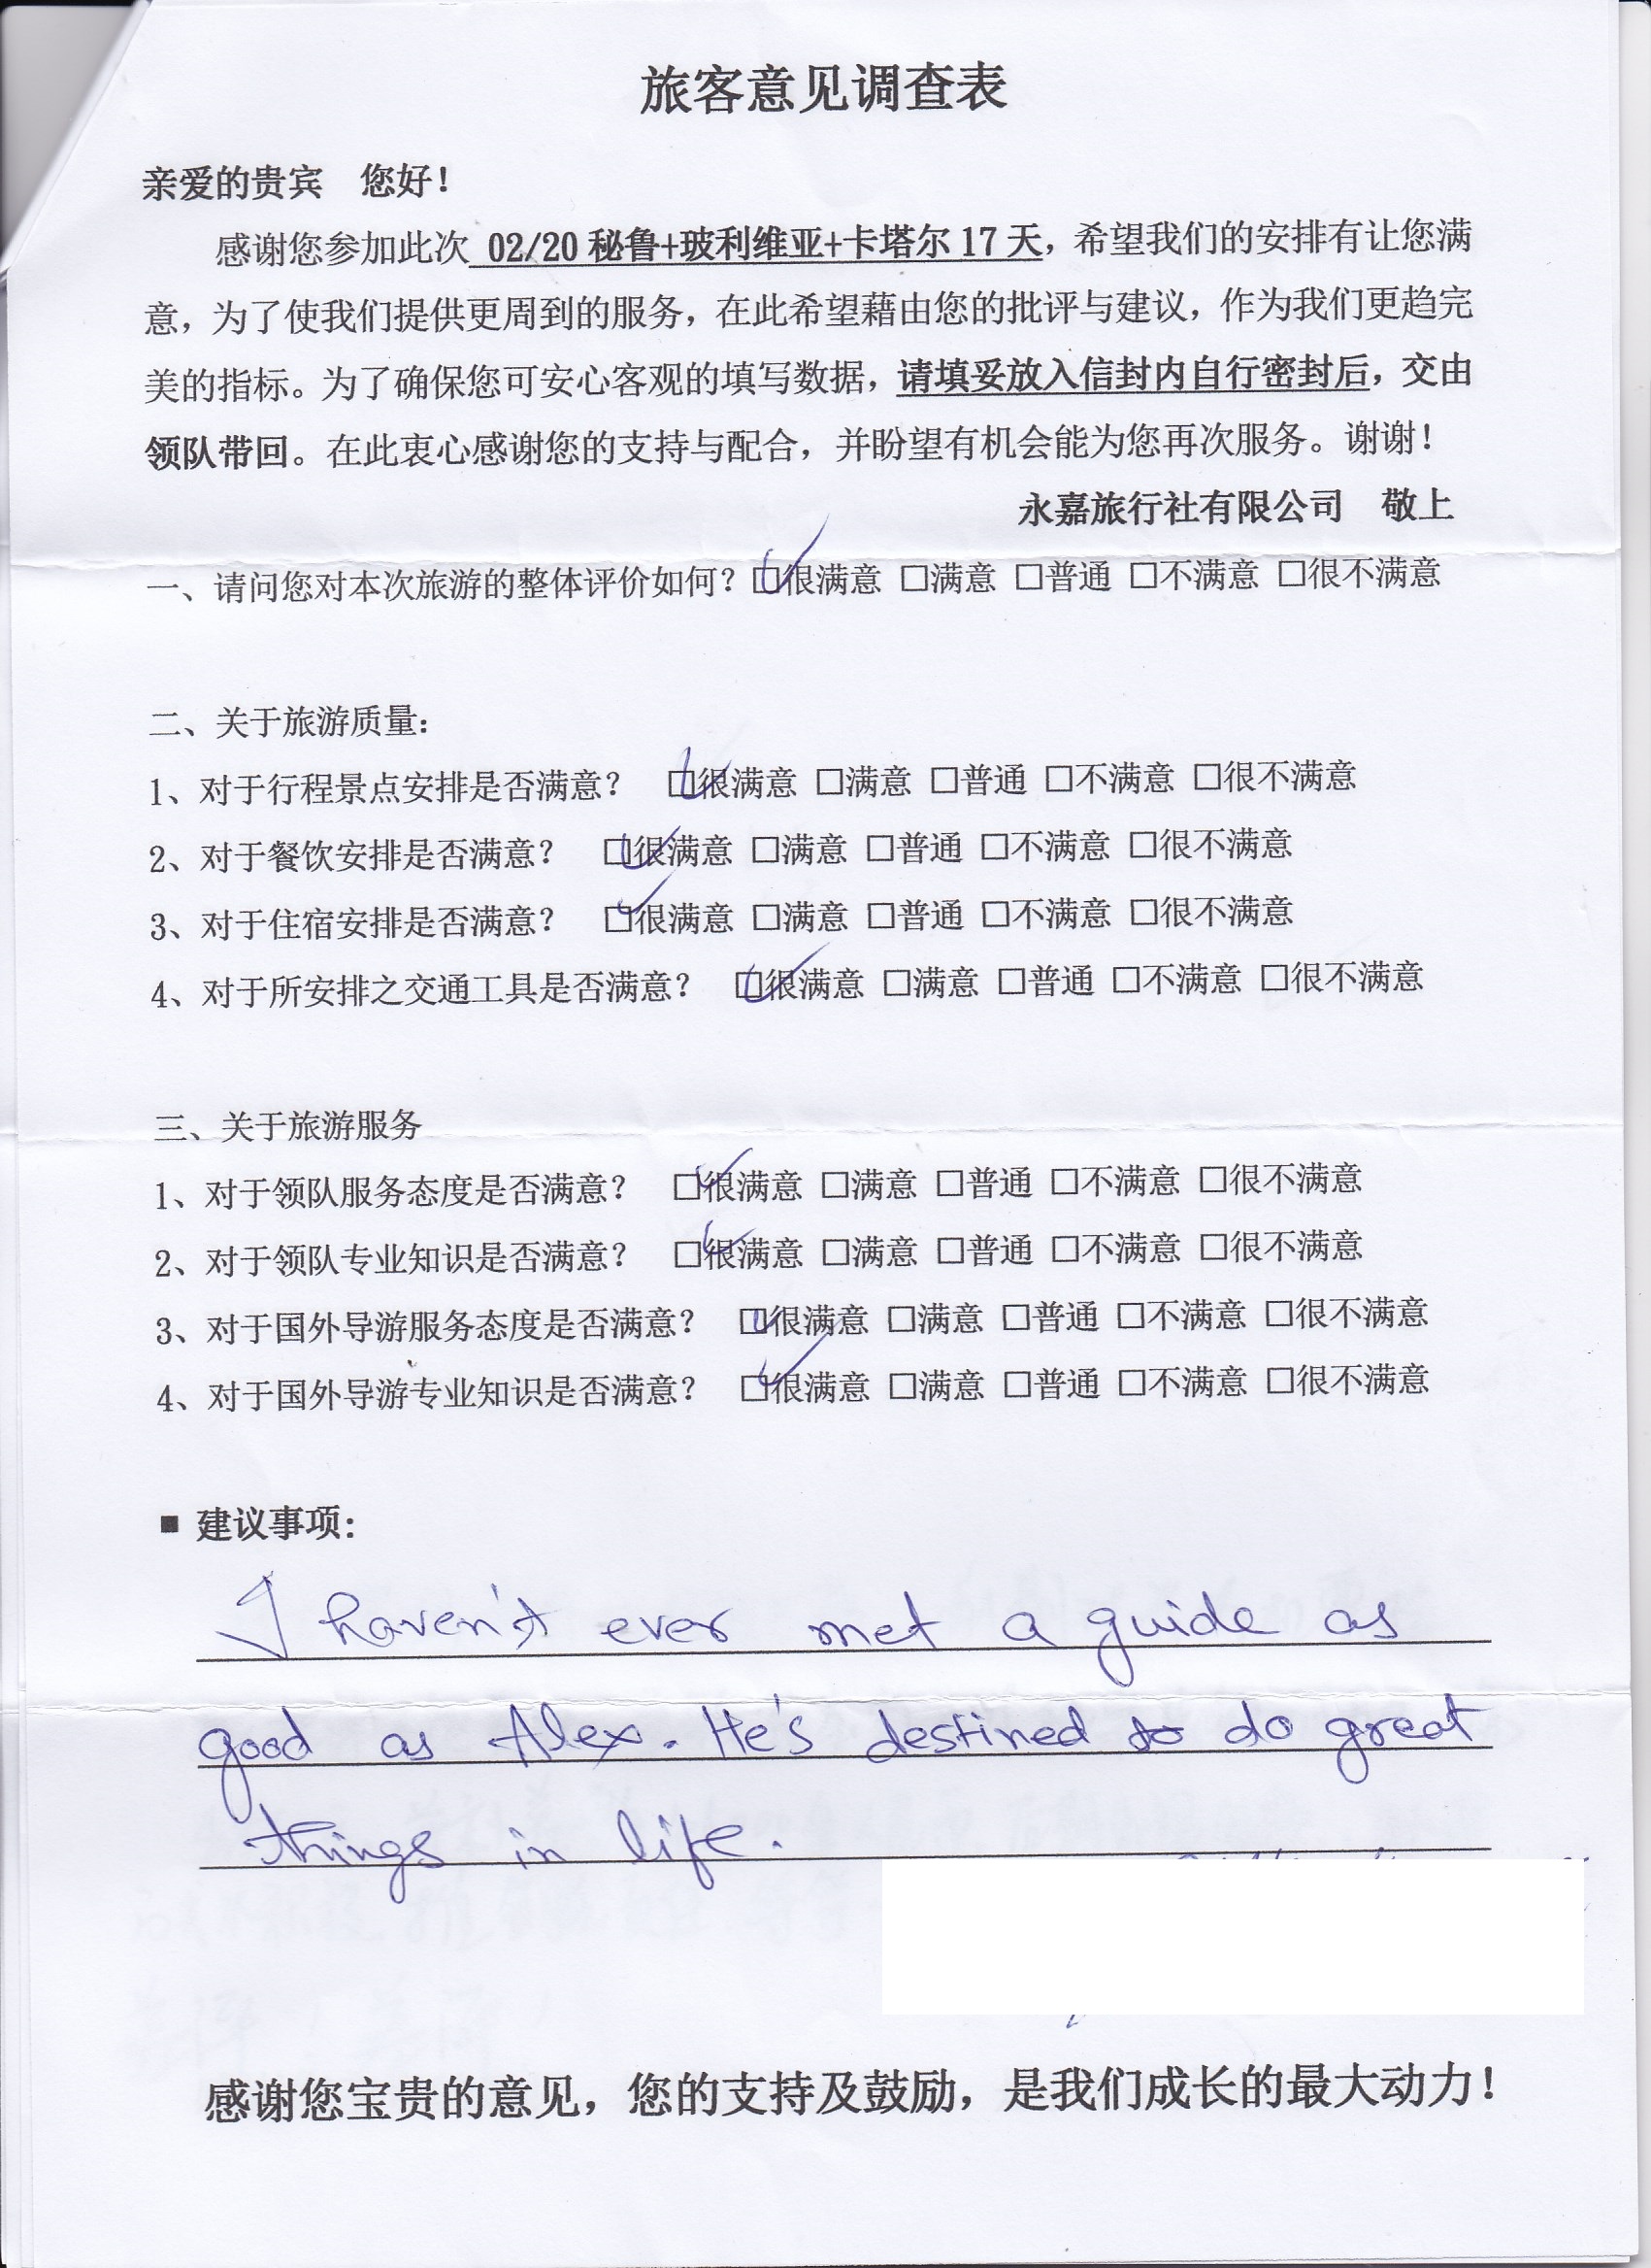 旅客意见调查表
亲爱的贵宾　您好！
感谢您参加此次 02/20 秘鲁+玻利维亚+卡塔尔 17 天，希望我们的安排有让您满
意，为了使我们提供更周到的服务，在此希望藉由您的批评与建议，作为我们更趋完
美的指标。为了确保您可安心客观的填写数据，请填妥放入信封内自行密封后，交由
领队带回。在此衷心感谢您的支持与配合，并盼望有机会能为您再次服务。谢谢！
永嘉旅行社有限公司　敬上
一、请问您对本次旅游的整体评价如何？☑很满意 □满意 □普通 □不满意 □很不满意
二、关于旅游质量：
1、对于行程景点安排是否满意？ ☑很满意 □满意 □普通 □不满意 □很不满意
2、对于餐饮安排是否满意？ ☑很满意 □满意 □普通 □不满意 □很不满意
3、对于住宿安排是否满意？ ☑很满意 □满意 □普通 □不满意 □很不满意
4、对于所安排之交通工具是否满意？ ☑很满意 □满意 □普通 □不满意 □很不满意
三、关于旅游服务
1、对于领队服务态度是否满意？ ☑很满意 □满意 □普通 □不满意 □很不满意
2、对于领队专业知识是否满意？ ☑很满意 □满意 □普通 □不满意 □很不满意
3、对于国外导游服务态度是否满意？ ☑很满意 □满意 □普通 □不满意 □很不满意
4、对于国外导游专业知识是否满意？ ☑很满意 □满意 □普通 □不满意 □很不满意
■ 建议事项：
I haven't ever met a guide as
good as Alex. He's destined to do great
things in life.
感谢您宝贵的意见，您的支持及鼓励，是我们成长的最大动力！